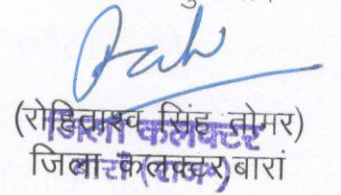 (रोहिताश्व सिंह तोमर)
जिला कलक्टर
जिला कलक्टर, बारां
बारां (राज.)